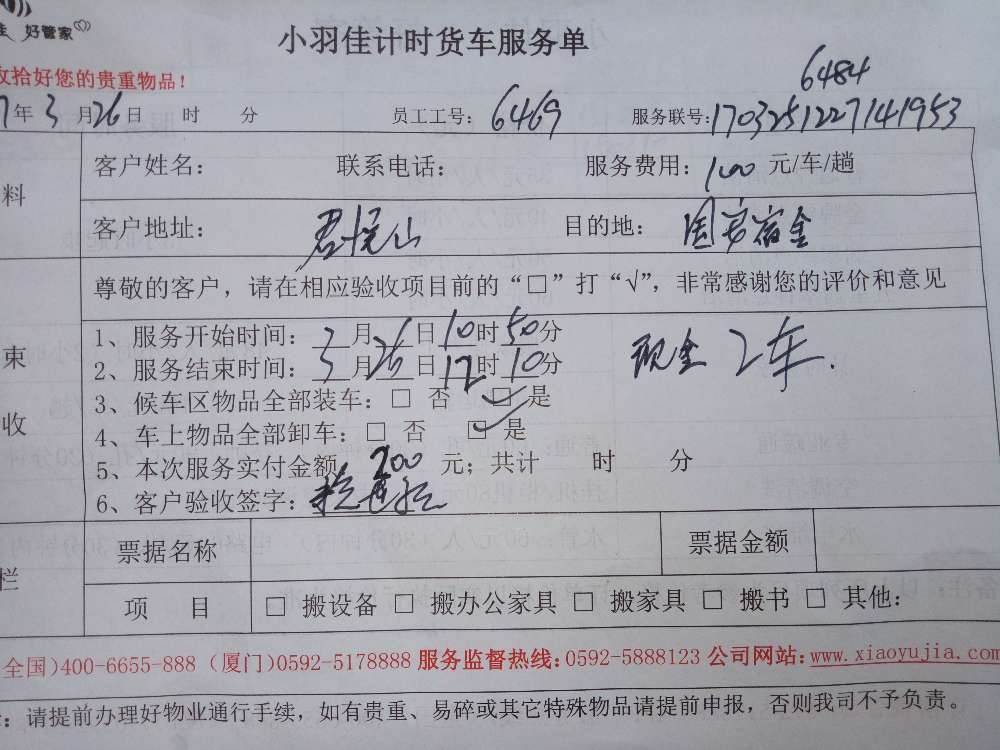 好管家
小羽佳计时货车服务单
收拾好您的贵重物品！
6484
7年3月26日 时 分 员工工号：6469 服务联号：1703251227141953
料 客户姓名： 联系电话： 服务费用：100元/车/趟
客户地址：君悦山 目的地：固安宿舍
尊敬的客户，请在相应验收项目前的“□”打“√”，非常感谢您的评价和意见
1、服务开始时间：3月26日10时50分
2、服务结束时间：3月26日12时10分
现金2车.
束
3、候车区物品全部装车：□ 否 ☑ 是
收
4、车上物品全部卸车：□ 否 ☑ 是
5、本次服务实付金额 200 元；共计 时 分
6、客户验收签字：
栏 票据名称 票据金额
项 目 □ 搬设备 □ 搬办公家具 □ 搬家具 □ 搬书 □ 其他：
全国)400-6655-888（厦门)0592-5178888 服务监督热线:0592-5888123 公司网站:www.xiaoyujia.com
：请提前办理好物业通行手续，如有贵重、易碎或其它特殊物品请提前申报，否则我司不予负责。